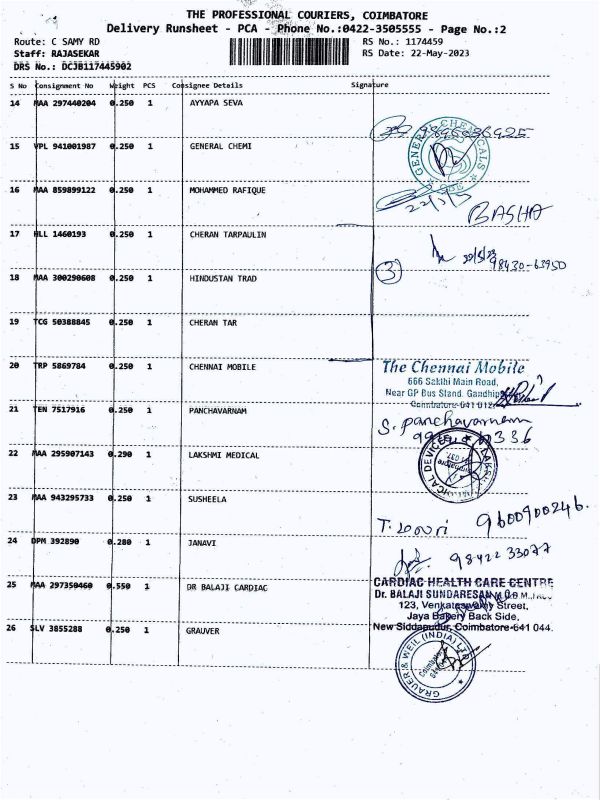 THE PROFESSIONAL COURIERS, COIMBATORE
Delivery Runsheet - PCA - Phone No.:0422-3505555 - Page No.:2
Route: C SAMY RD RS No.: 1174459
Staff: RAJASEKAR RS Date: 22-May-2023
DRS No.: DCJB117445902
S No Consignment No Weight PCS Consignee Details Signature
14 MAA 297440204 0.250 1 AYYAPA SEVA
15 VPL 941001987 0.250 1 GENERAL CHEMI
GENERAL CHEMICALS
CBE
16 MAA 859899122 0.250 1 MOHAMMED RAFIQUE
22/5/
BASHA
17 HLL 1460193 0.250 1 CHERAN TARPAULIN
22/5/23
98430-63950
3
18 MAA 300290608 0.250 1 HINDUSTAN TRAD
19 TCG 50388845 0.250 1 CHERAN TAR
20 TRP 5869784 0.250 1 CHENNAI MOBILE
The Chennai Mobile
666 Sakthi Main Road,
Near GP Bus Stand, Gandhip
Coimbatore-641 012
21 TEN 7517916 0.250 1 PANCHAVARNAM
S. panchavarnam
22 MAA 295907143 0.290 1 LAKSHMI MEDICAL
23 MAA 943295733 0.250 1 SUSHEELA
9600900246.
24 DPM 392890 0.280 1 JANAVI
98422 33077
25 MAA 297350460 0.550 1 DR BALAJI CARDIAC
CARDIAC HEALTH CARE CENTRE
Dr. BALAJI SUNDARESAN
123, Venkataswamy Street,
Jaya Bakery Back Side,
New Siddapudur, Coimbatore-641 044.
26 SLV 3855288 0.250 1 GRAUVER
GRAUER & WEIL (INDIA) LTD
Coimbatore